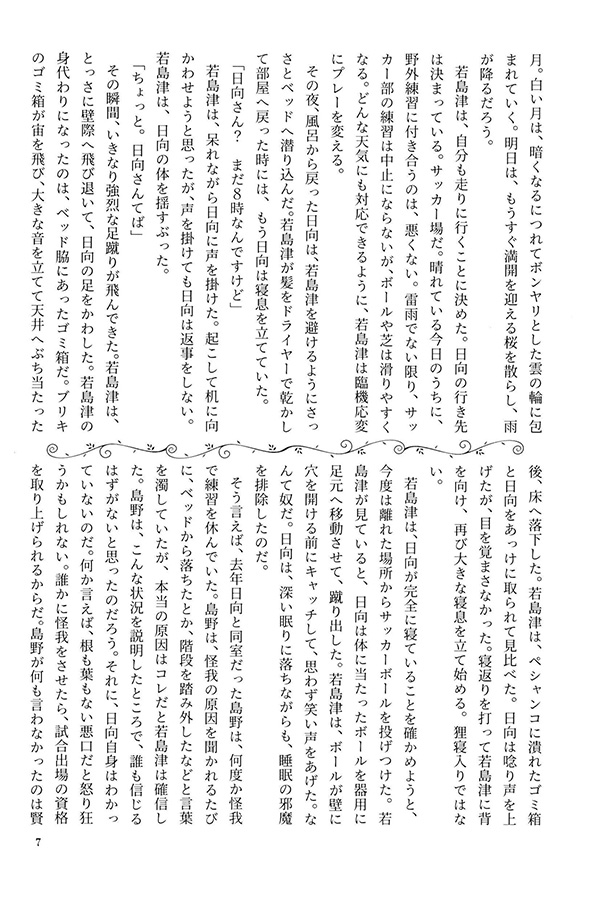 月。白い月は、暗くなるにつれてボンヤリとした雲の輪に包
まれていく。明日は、もうすぐ満開を迎える桜を散らし、雨
が降るだろう。
若島津は、自分も走りに行くことに決めた。日向の行き先
は決まっている。サッカー場だ。晴れている今日のうちに、
野外練習に付き合うのは、悪くない。雷雨でない限り、サッ
カー部の練習は中止にならないが、ボールや芝は滑りやすく
なる。どんな天気にも対応できるように、若島津は臨機応変
にプレーを変える。
その夜、風呂から戻った日向は、若島津を避けるようにさっ
さとベッドへ潜り込んだ。若島津が髪をドライヤーで乾かし
て部屋へ戻った時には、もう日向は寝息を立てていた。
「日向さん？　まだ８時なんですけど」
若島津は、呆れながら日向に声を掛けた。起こして机に向
かわせようと思ったが、声を掛けても日向は返事をしない。
若島津は、日向の体を揺すぶった。
「ちょっと。日向さんてば」
その瞬間、いきなり強烈な足蹴りが飛んできた。若島津は、
とっさに壁際へ飛び退いて、日向の足をかわした。若島津の
身代わりになったのは、ベッド脇にあったゴミ箱だ。ブリキ
のゴミ箱が宙を飛び、大きな音を立てて天井へぶち当たった
後、床へ落下した。若島津は、ペシャンコに潰れたゴミ箱
と日向をあっけに取られて見比べた。日向は唸り声を上
げたが、目を覚まさなかった。寝返りを打って若島津に背
を向け、再び大きな寝息を立て始める。狸寝入りではな
い。
若島津は、日向が完全に寝ていることを確かめようと、
今度は離れた場所からサッカーボールを投げつけた。若
島津が見ていると、日向は体に当たったボールを器用に
足元へ移動させて、蹴り出した。若島津は、ボールが壁に
穴を開ける前にキャッチして、思わず笑い声をあげた。な
んて奴だ。日向は、深い眠りに落ちながらも、睡眠の邪魔
を排除したのだ。
そう言えば、去年日向と同室だった島野は、何度か怪我
で練習を休んでいた。島野は、怪我の原因を聞かれるたび
に、ベッドから落ちたとか、階段を踏み外したなどと言葉
を濁していたが、本当の原因はコレだと若島津は確信し
た。島野は、こんな状況を説明したところで、誰も信じる
はずがないと思ったのだろう。それに、日向自身はわかっ
ていないのだ。何か言えば、根も葉もない悪口だと怒り狂
うかもしれない。誰かに怪我をさせたら、試合出場の資格
を取り上げられるからだ。島野が何も言わなかったのは賢
7